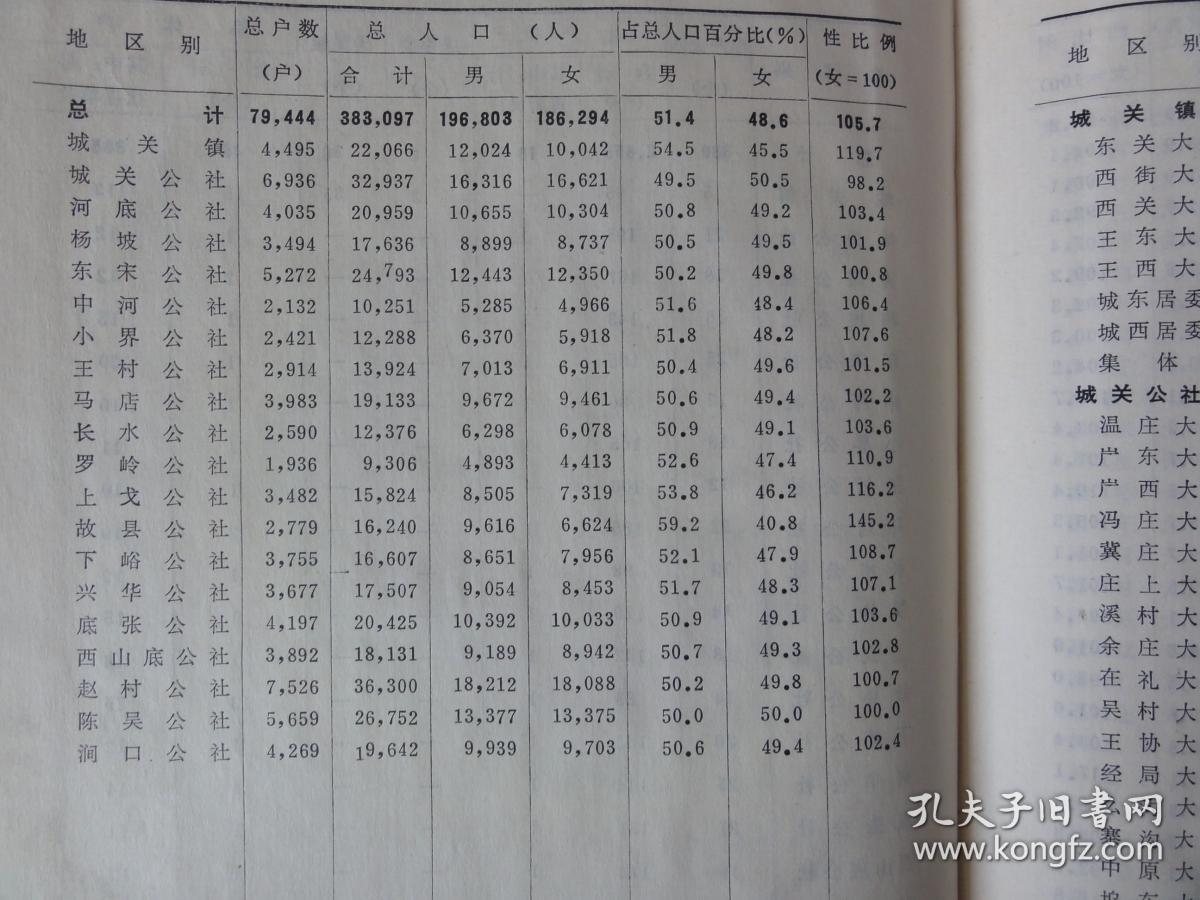 地区别 总户数 总人口(人) 占总人口百分比(%) 性比例
(户) 合计 男 女 男 女 (女=100)
总计 79,444 383,097 196,803 186,294 51.4 48.6 105.7
城关镇 4,495 22,066 12,024 10,042 54.5 45.5 119.7
城关公社 6,936 32,937 16,316 16,621 49.5 50.5 98.2
河底公社 4,035 20,959 10,655 10,304 50.8 49.2 103.4
杨坡公社 3,494 17,636 8,899 8,737 50.5 49.5 101.9
东宋公社 5,272 24,793 12,443 12,350 50.2 49.8 100.8
中河公社 2,132 10,251 5,285 4,966 51.6 48.4 106.4
小界公社 2,421 12,288 6,370 5,918 51.8 48.2 107.6
王村公社 2,914 13,924 7,013 6,911 50.4 49.6 101.5
马店公社 3,983 19,133 9,672 9,461 50.6 49.4 102.2
长水公社 2,590 12,376 6,298 6,078 50.9 49.1 103.6
罗岭公社 1,936 9,306 4,893 4,413 52.6 47.4 110.9
上戈公社 3,482 15,824 8,505 7,319 53.8 46.2 116.2
故县公社 2,779 16,240 9,616 6,624 59.2 40.8 145.2
下峪公社 3,755 16,607 8,651 7,956 52.1 47.9 108.7
兴华公社 3,677 17,507 9,054 8,453 51.7 48.3 107.1
底张公社 4,197 20,425 10,392 10,033 50.9 49.1 103.6
西山底公社 3,892 18,131 9,189 8,942 50.7 49.3 102.8
赵村公社 7,526 36,300 18,212 18,088 50.2 49.8 100.7
陈吴公社 5,659 26,752 13,377 13,375 50.0 50.0 100.0
涧口公社 4,269 19,642 9,939 9,703 50.6 49.4 102.4
地区别
城关镇
东关大
西街大
西关大
王东大
王西大
城东居委
城西居委
集体
城关公社
温庄大
东大
西大
冯庄大
冀庄大
庄上大
溪村大
余庄大
在礼大
吴村大
王协大
经局大
大
寨沟大
中原大
大
孔夫子旧书网
www.kongfz.com